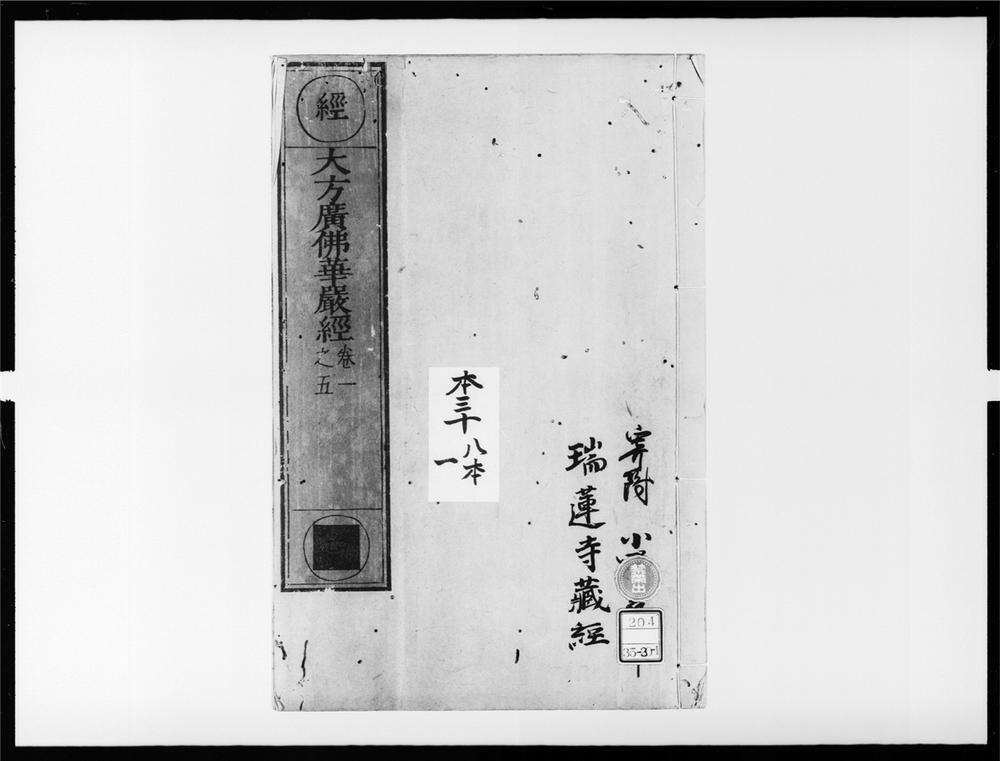 經
大方廣佛華嚴經
卷一
之五
本三十八本
一
寄附 小
瑞蓮寺藏經
禁帶出
204
35-3